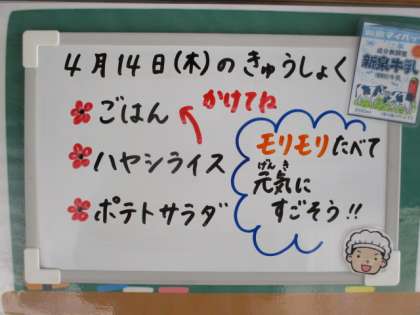 4月14日(木)のきゅうしょく
ごはん
かけてね
ハヤシライス
ポテトサラダ
モリモリたべて
げんき
元気に
すごそう!!
成分無調整
新泉牛乳